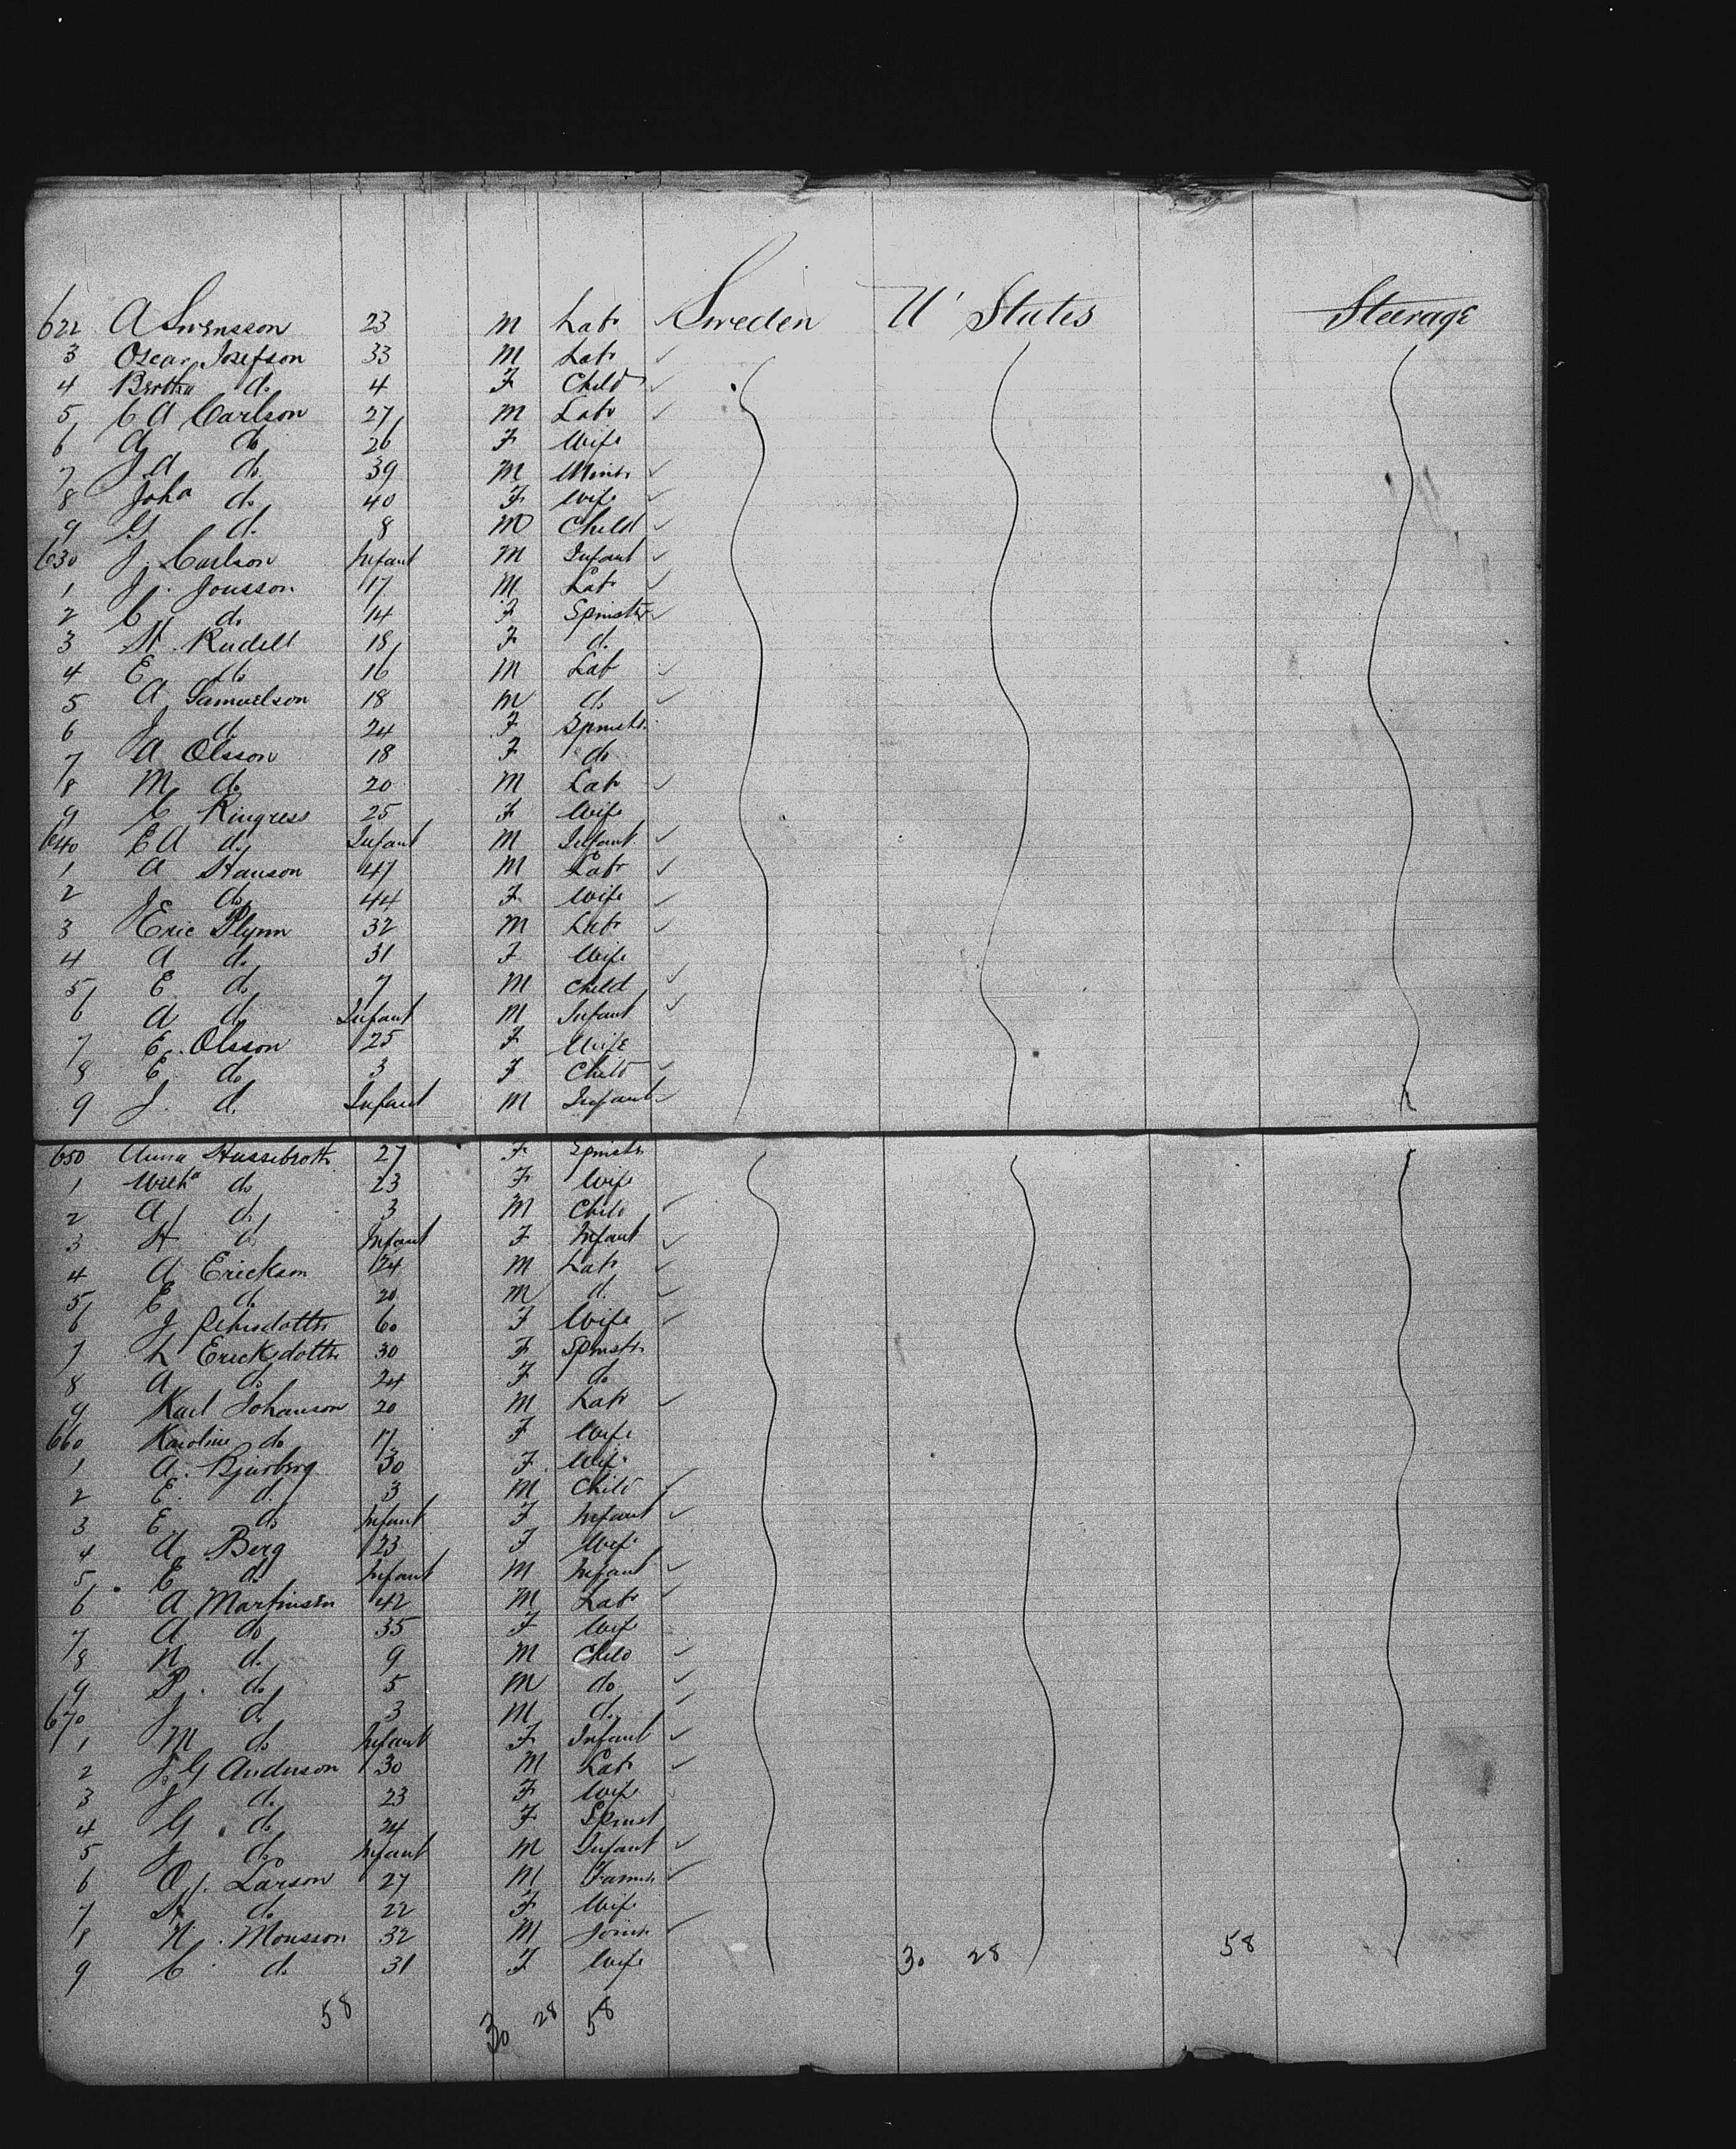 622 A Swensson 23 M Labr Sweden U' States Steerage
3 Oscar Josefson 33 M Labr
4 Bertha do 4 F Child
5 C A Carlson 27 M Labr
6 do 26 F Wife
7 J A do 39 M
8 Joha do 40 F Wife
9 G do 8 M Child
630 J. Carlson Infant M Infant
1 J. Jonsson 17 M Labr
2 C do 14 F Spinster
3 H. Rudell 18 F do
4 E do 16 M Lab
5 A Samuelson 18 M do
6 J do 24 F Spinstr
7 A Olsson 18 F do
8 M do 20 M Labr
9 C Ringress 25 F Wife
640 E A do Infant M Infant
1 A Hanson 47 M Labr
2 J do 44 F Wife
3 Eric Plynn 32 M Labr
4 A do 31 F Wife
5 E do 7 M Child
6 A do Infant M Infant
7 E. Olsson 25 F Wife
8 E. do 3 F Child
9 J. do Infant M Infant
650 Anna 27 F Spinstr
1 Wilha do 23 F Wife
2 A do 3 M Child
3 H do Infant F Infant
4 A Erickson 24 M Labr
5 E do 20 M do
6 J 60 F Wife
7 L Ericksdottr 30 F Spinstr
8 A do 24 F do
9 Karl Johanson 20 M Labr
660 Karoline do 17 F Wife
1 A. Bjurberg 30 F Wife
2 E. do 3 M Child
3 E do Infant F Infant
4 A Berg 23 F Wife
5 E do Infant M Infant
6 A Martinsen 42 M Labr
7 A do 35 F Wife
8 N do 9 M Child
9 P. do 5 M do
670 J do 3 M do
1 M do Infant F Infant
2 J. G Anderson 30 M Labr
3 J do 23 F Wife
4 G do 24 F Spinst
5 J do Infant M Infant
6 O J. Larson 27 M Farmer
7 H do 22 F Wife
8 N. Monsson 32 M Joinr
9 C do 31 F Wife 30 28 58
58 30 28 58